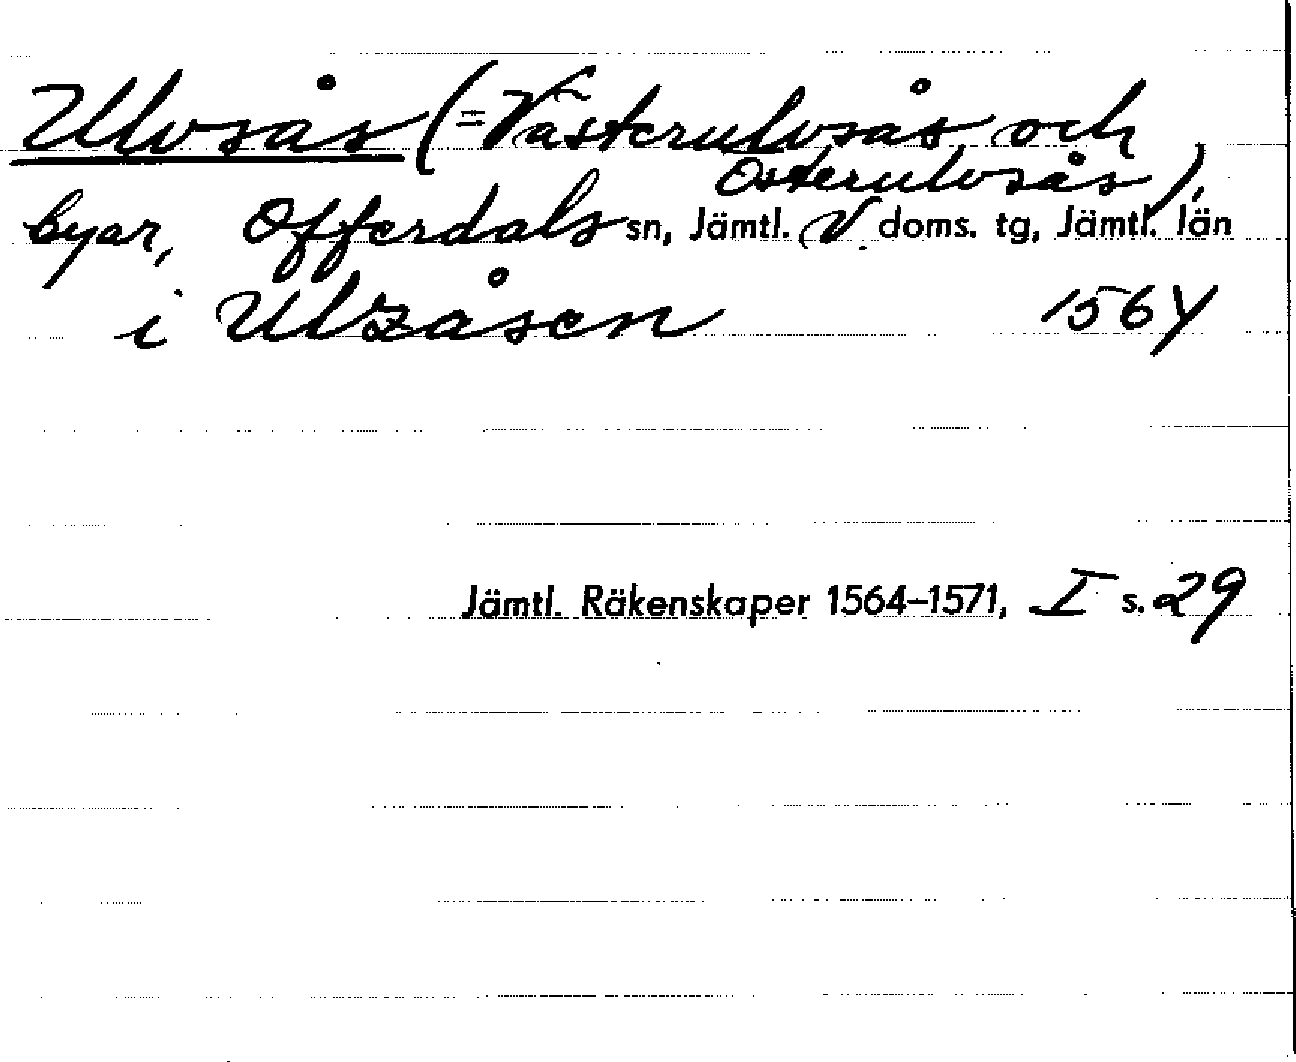 Ulvsås (= Västerulvsås och
Österulvsås),
byar, Offerdals sn, Jämtl. V. doms. tg, Jämtl. län
i Ulzåsen 1564
Jämtl. Räkenskaper 1564–1571, I s. 29